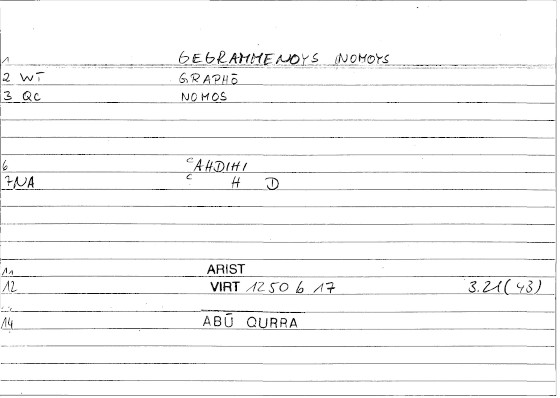 1 GEGRAMMENOYS NOMOYS
2 WT GRAPHŌ
3 QC NOMOS
6 ʿAHDIHI
7 NA ʿ H D
11 ARIST
12 VIRT 1250 b 17 3.21(43)
14 ABŪ QURRA